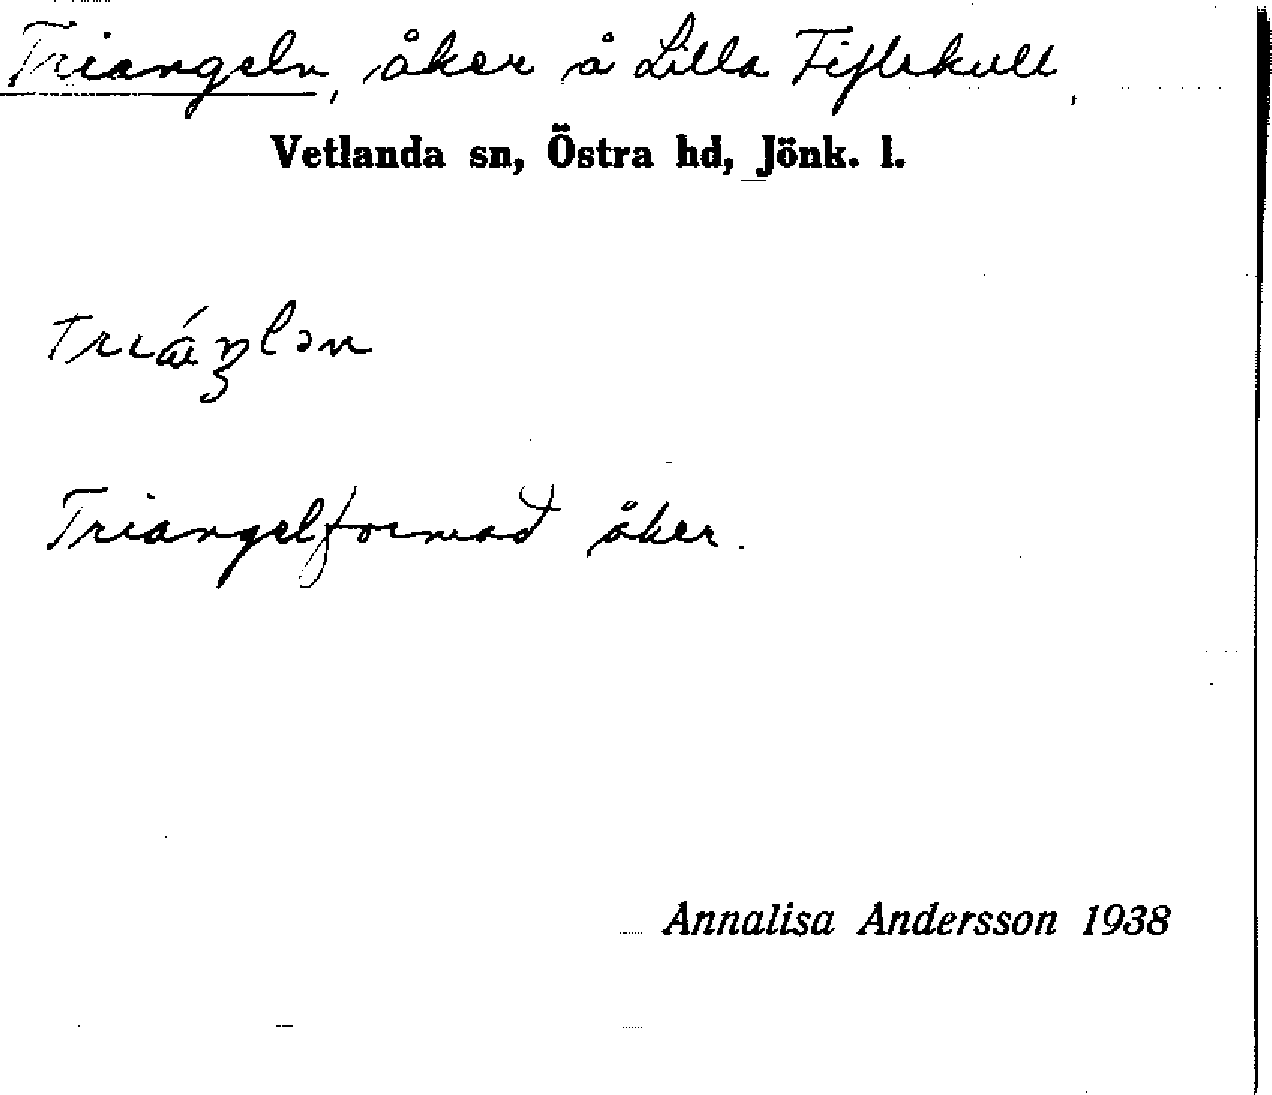 Triangeln, åker å Lilla Fiflekull,
Vetlanda sn, Östra hd, Jönk. l.
Triangelformad åker.
Annalisa Andersson 1938